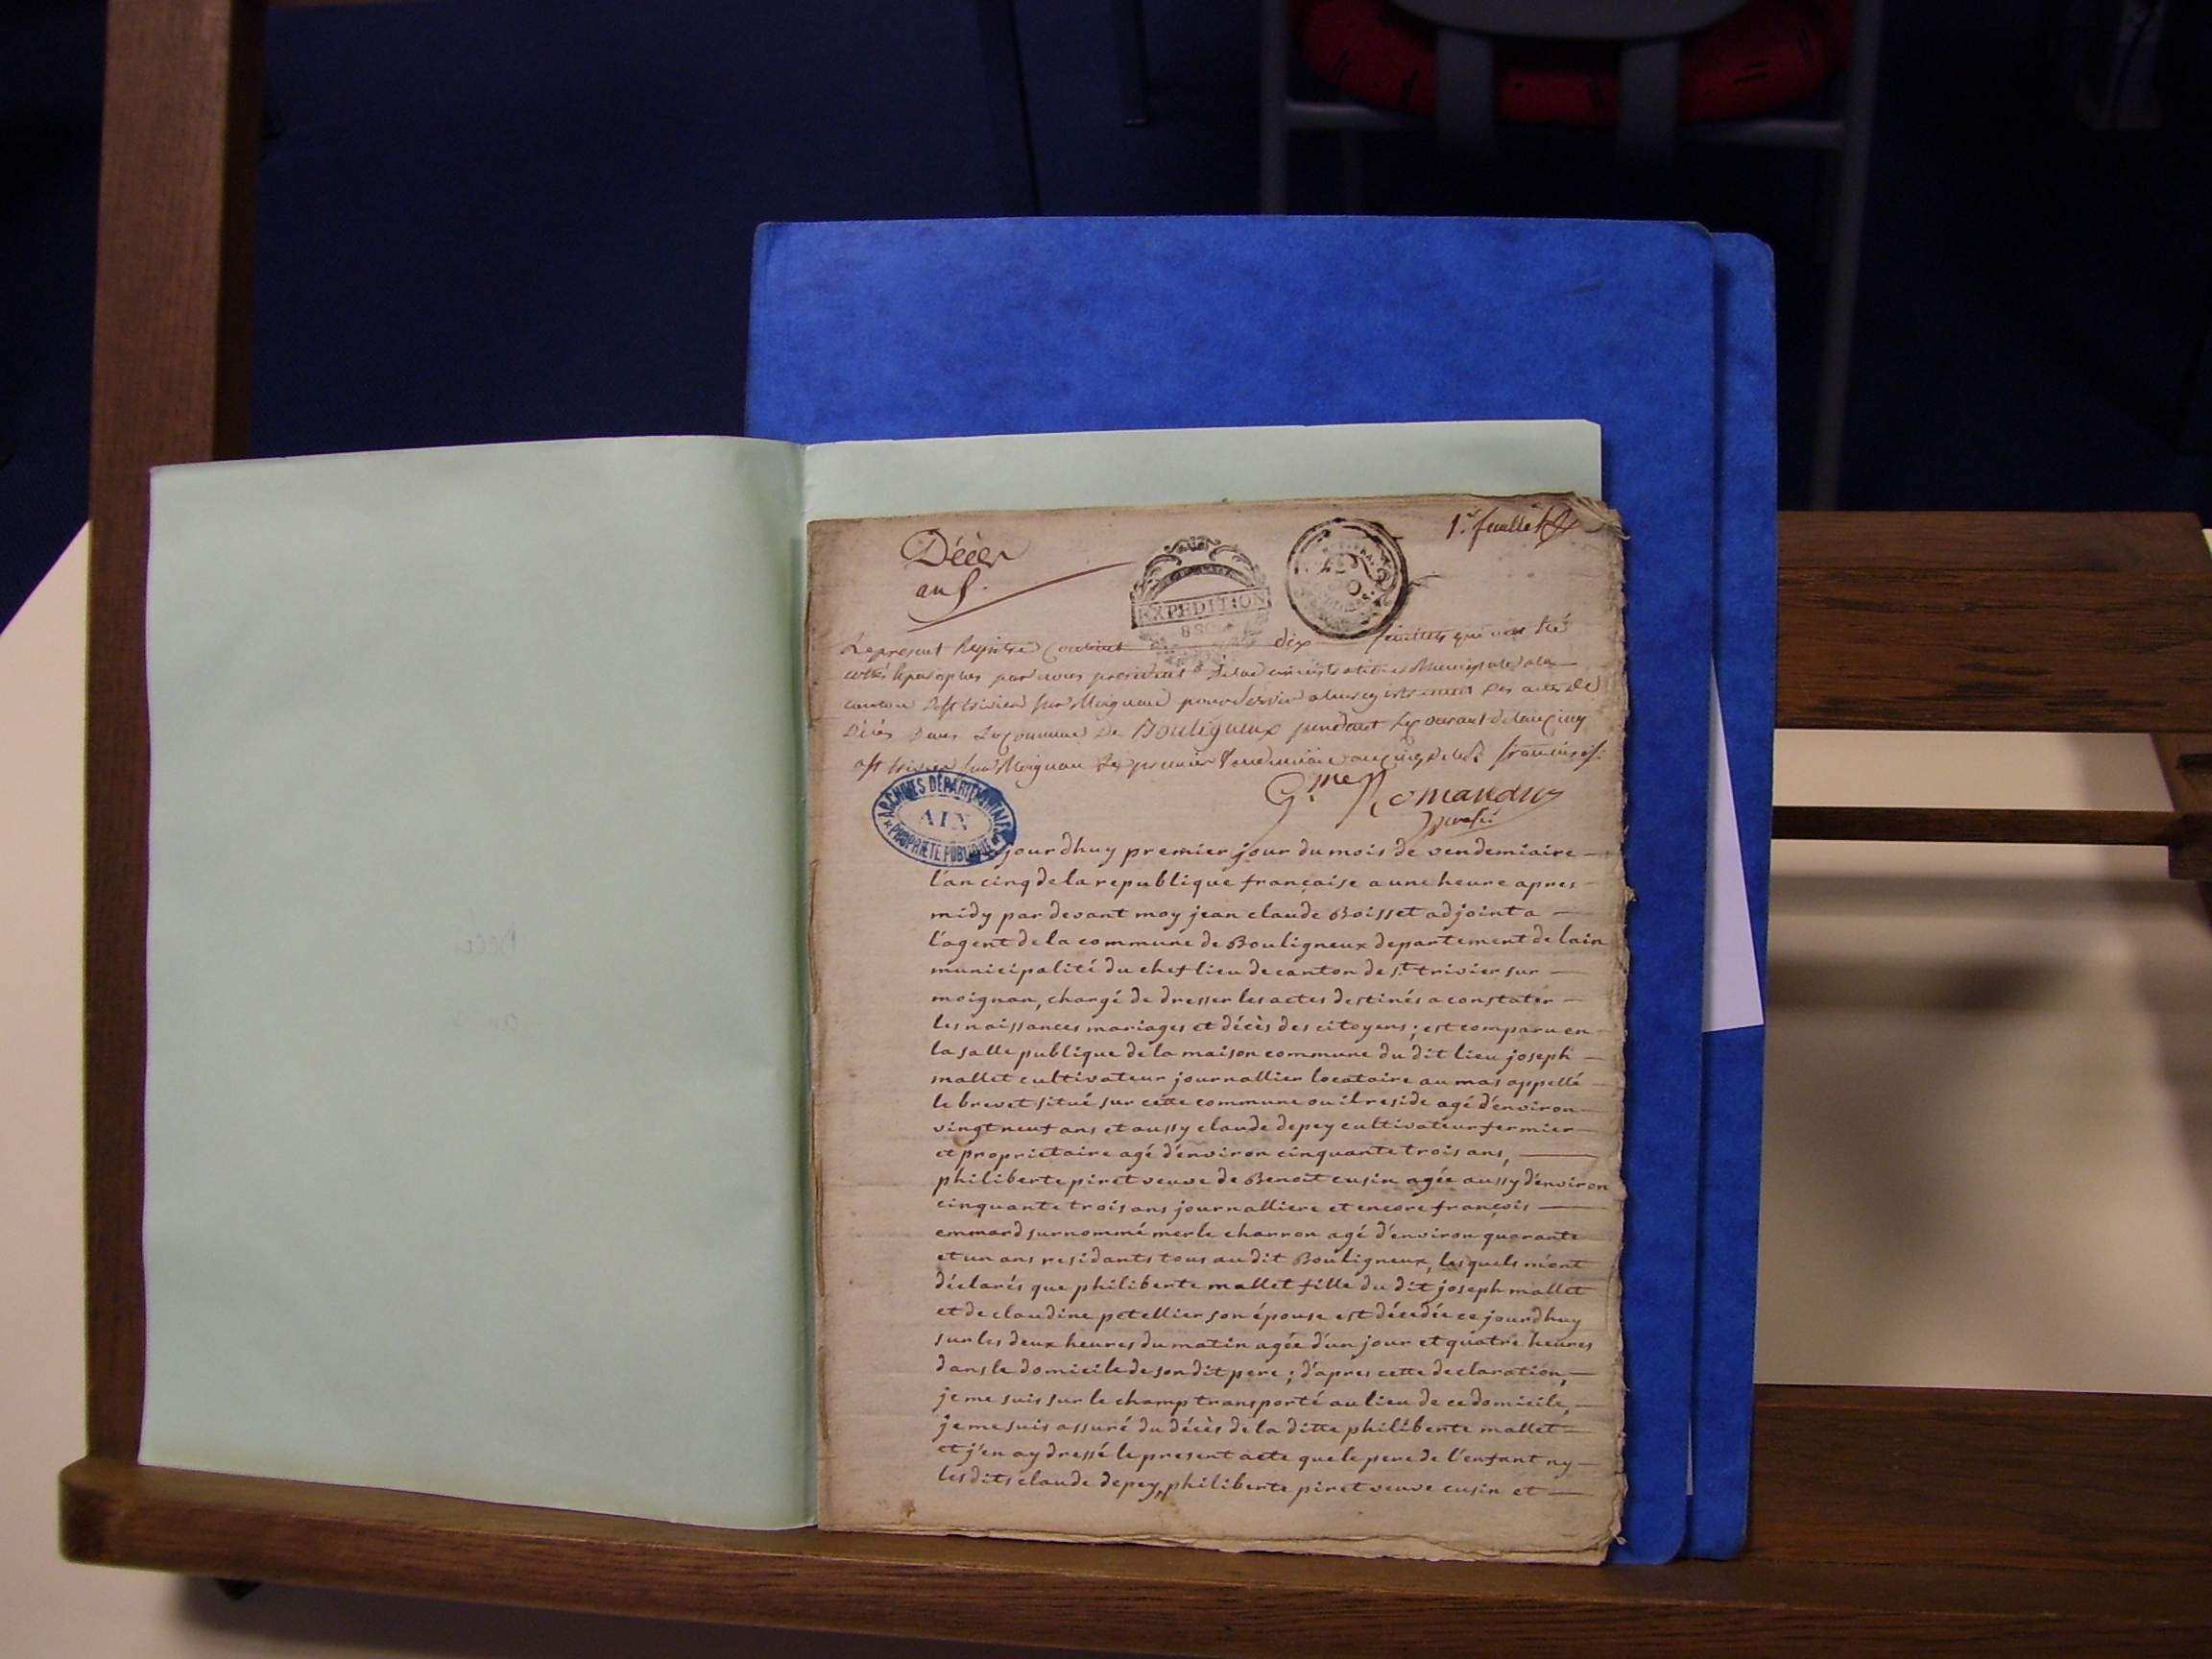 Décès
an 5.
1.er feuillet
EXPEDITION
Le present Registre contenant dix feuillets qui ont été
cottés & paraphés par nous president de l'administration Municipale du
canton de st trivier sur Moignan pour servir a l'enregistrement des actes de
Décès dans la commune de Bouligneux pendant le courant de l'an cinq
a st trivier sur Moignan le premier Vendemiaire an cinq de la R. françoise.
G.me Romandu
presid.
ARCHIVES DÉPARTEMENTALES
AIN
PROPRIÉTÉ PUBLIQUE
jourdhuy premier jour du mois de vendemiaire
l'an cinq de la republique française a une heure apres
midy par devant moy jean claude Boisset adjoint a
l'agent de la commune de Bouligneux departement de lain
municipalité du chef lieu de canton de s.t trivier sur
moignan, chargé de dresser les actes destinés a constater
les naissances mariages et décès des citoyens; est comparu en
la salle publique de la maison commune du dit lieu joseph
mallet cultivateur journallier locataire au mas appellé
le brevet situé sur cette commune ou il reside agé d'environ
vingt neuf ans et aussy claude depey cultivateur fermier
et proprietaire agé d'environ cinquante trois ans,
philiberte piret veuve de Benoit cusin agée aussy d'environ
cinquante trois ans journalliere et encore françois
emmard surnommé merle charron agé d'environ quarante
et un ans residants tous au dit Bouligneux, lesquels m'ont
déclarés que philiberte mallet fille du dit joseph mallet
et de claudine petellier son épouse est décedée ce jourdhuy
sur les deux heures du matin agée d'un jour et quatre heures
dans le domicile de son dit pere; d'apres cette declaration,
je me suis sur le champ transporté au lieu de ce domicile,
je me suis assuré du décès de la ditte philiberte mallet
et j'en ay dressé le present acte que le pere de l'enfant ny
les dits claude depey, philiberte piret veuve cusin et